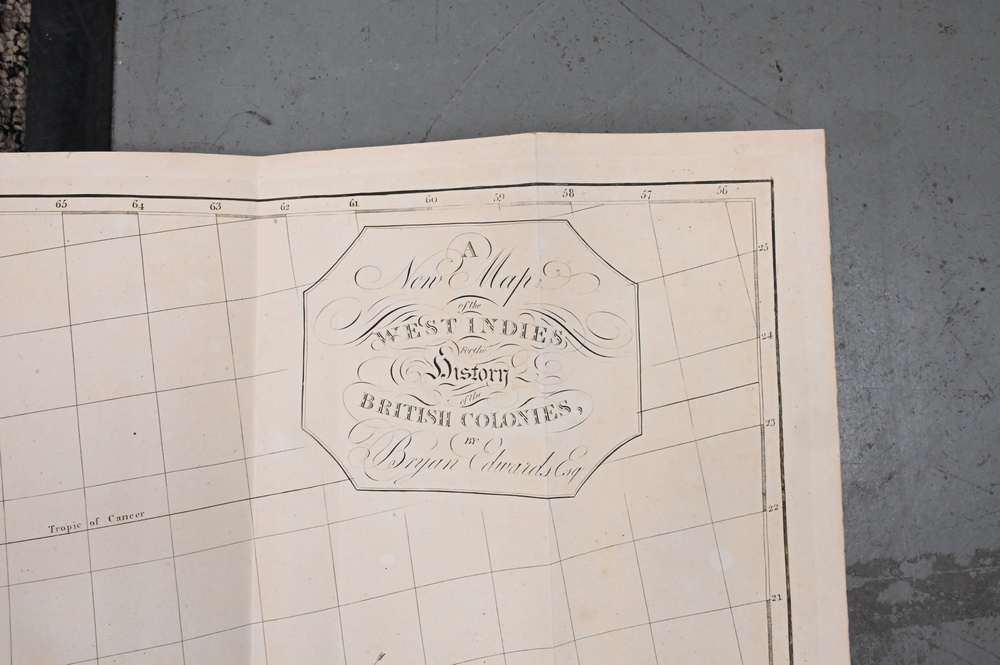 65 64 63 62 61 60 59 58 57 56
A
New Map
of the
WEST INDIES,
for the
History
of the
BRITISH COLONIES,
BY
Bryan Edwards Esq.
25
24
23
22
21
Tropic of Cancer